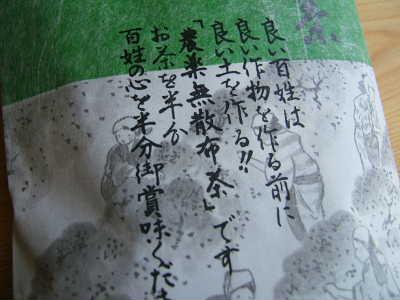 良い百姓は
良い作物を作る前に
良い土を作る!!
「農楽無散布茶」です
お茶を半分
百姓の心を半分御賞味くださ